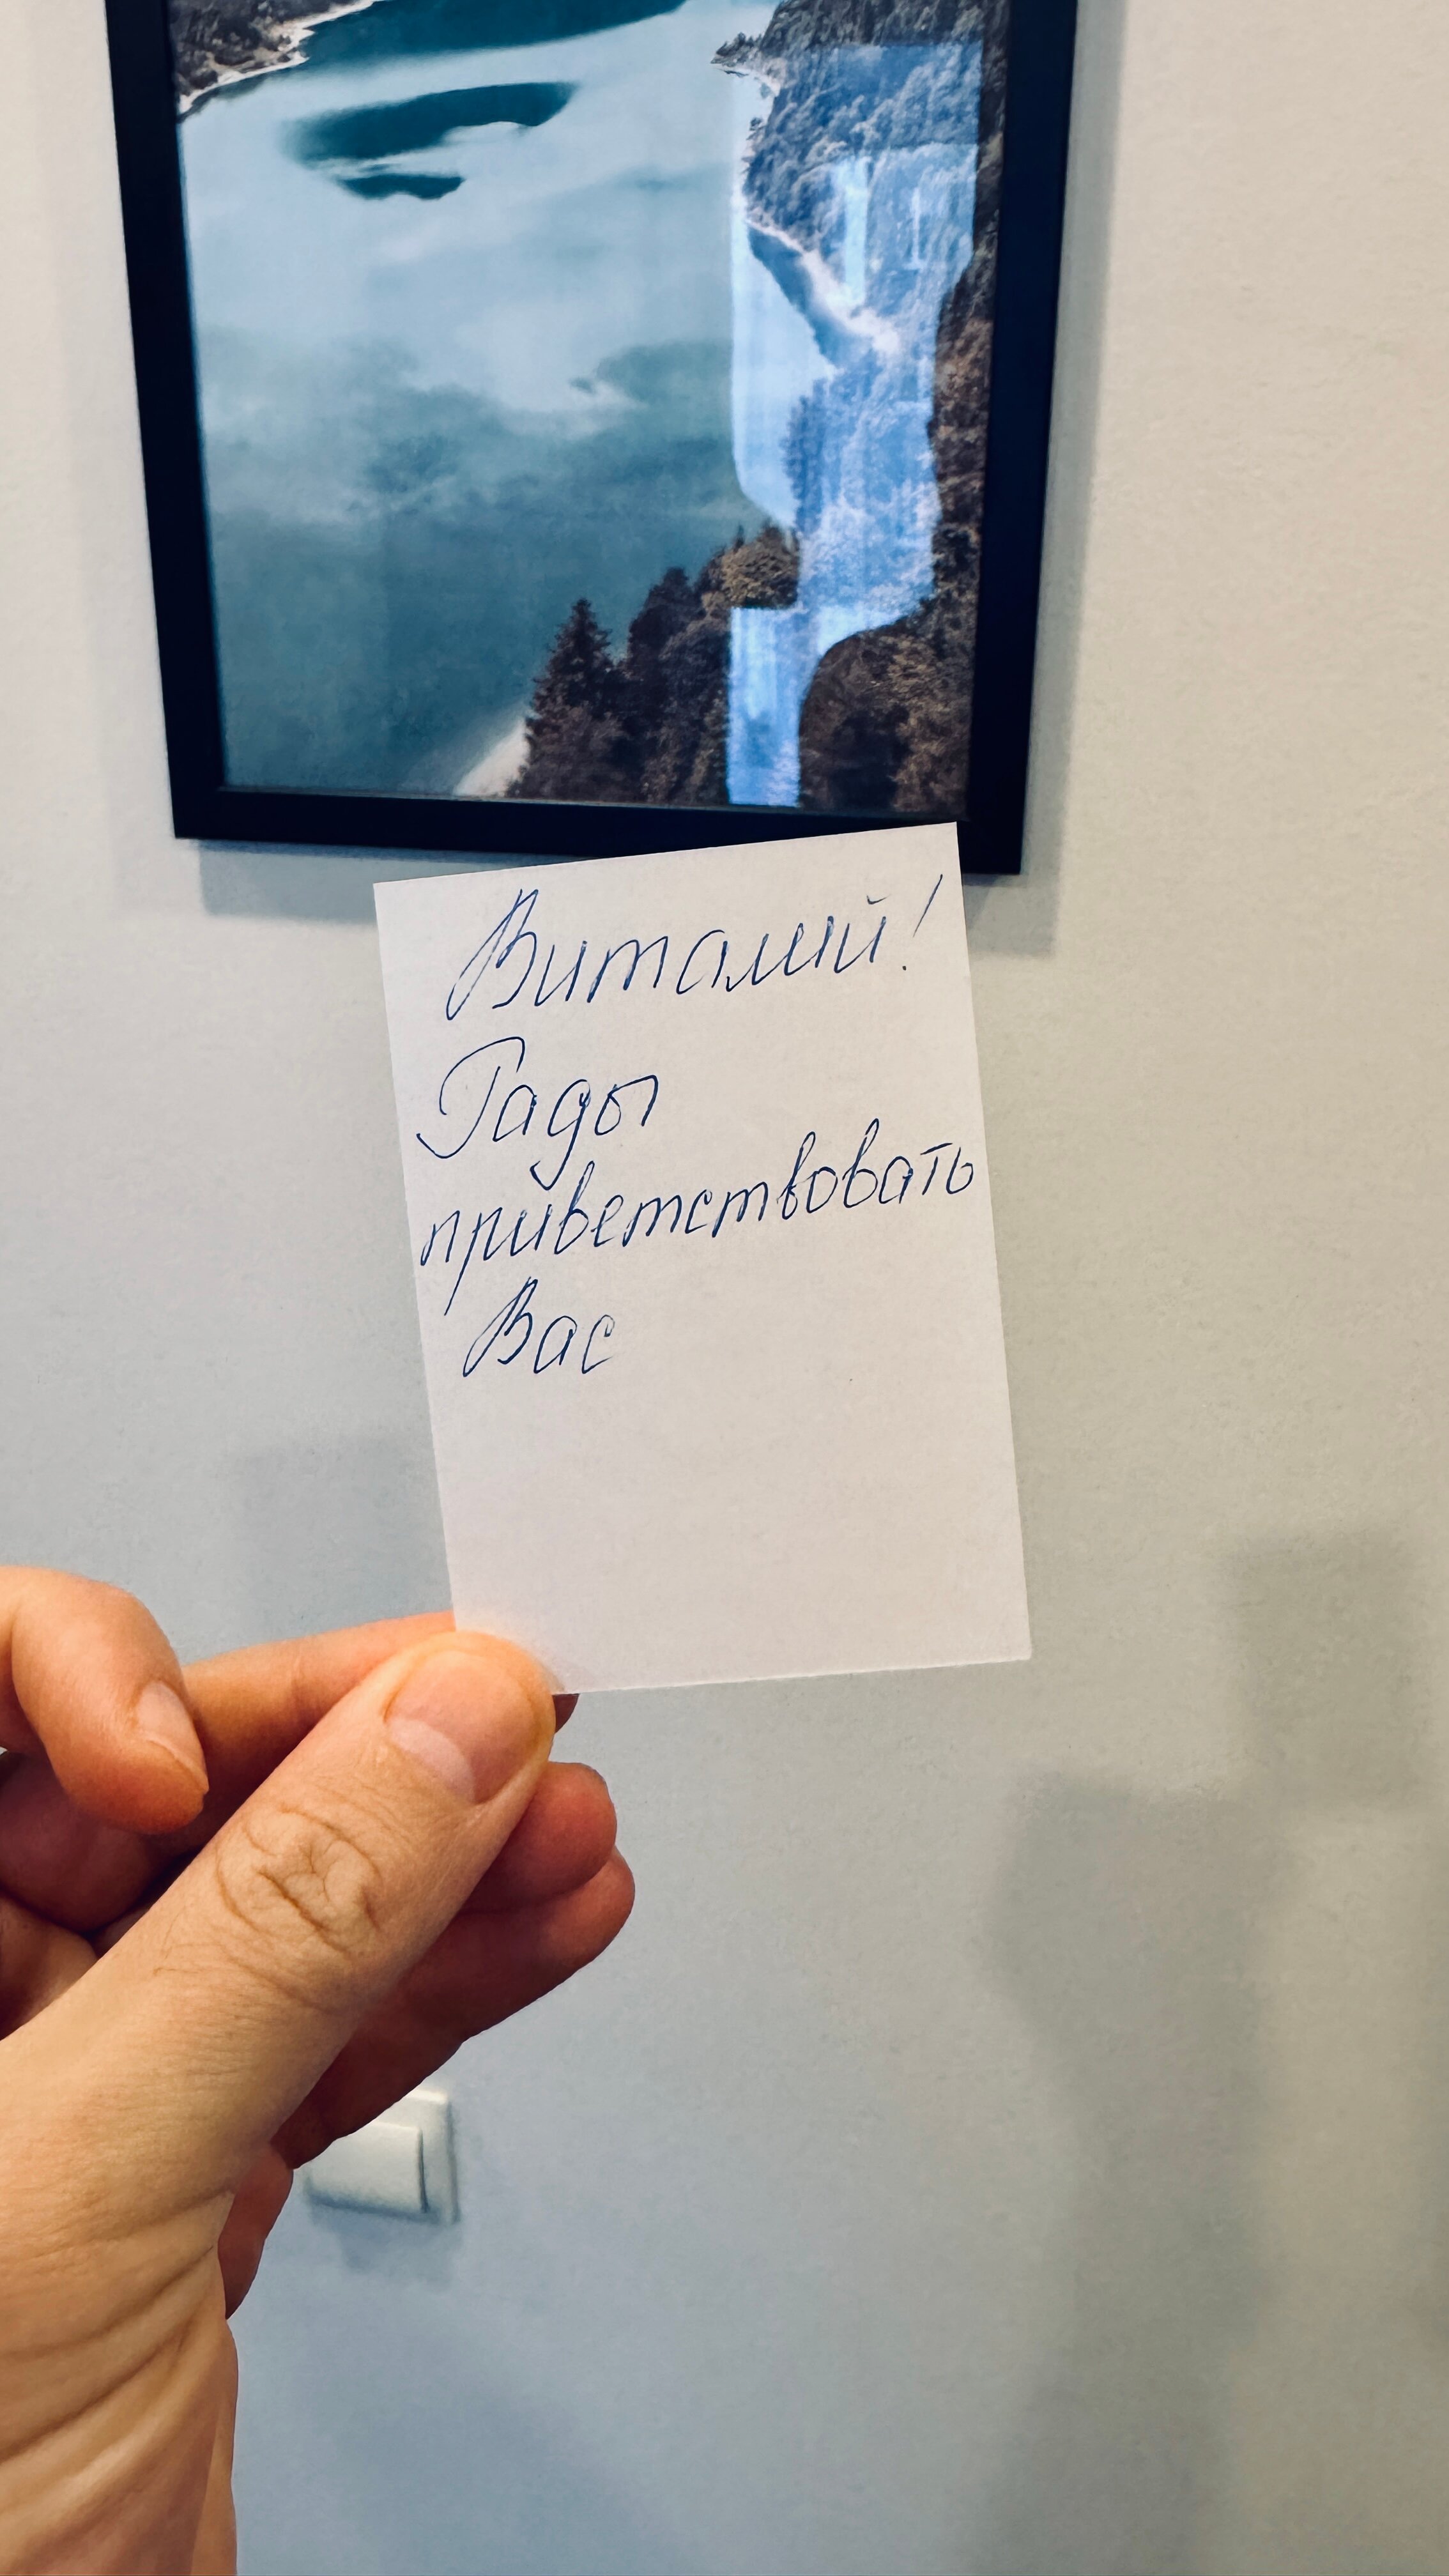 Виталий!
Рады
приветствовать
Вас